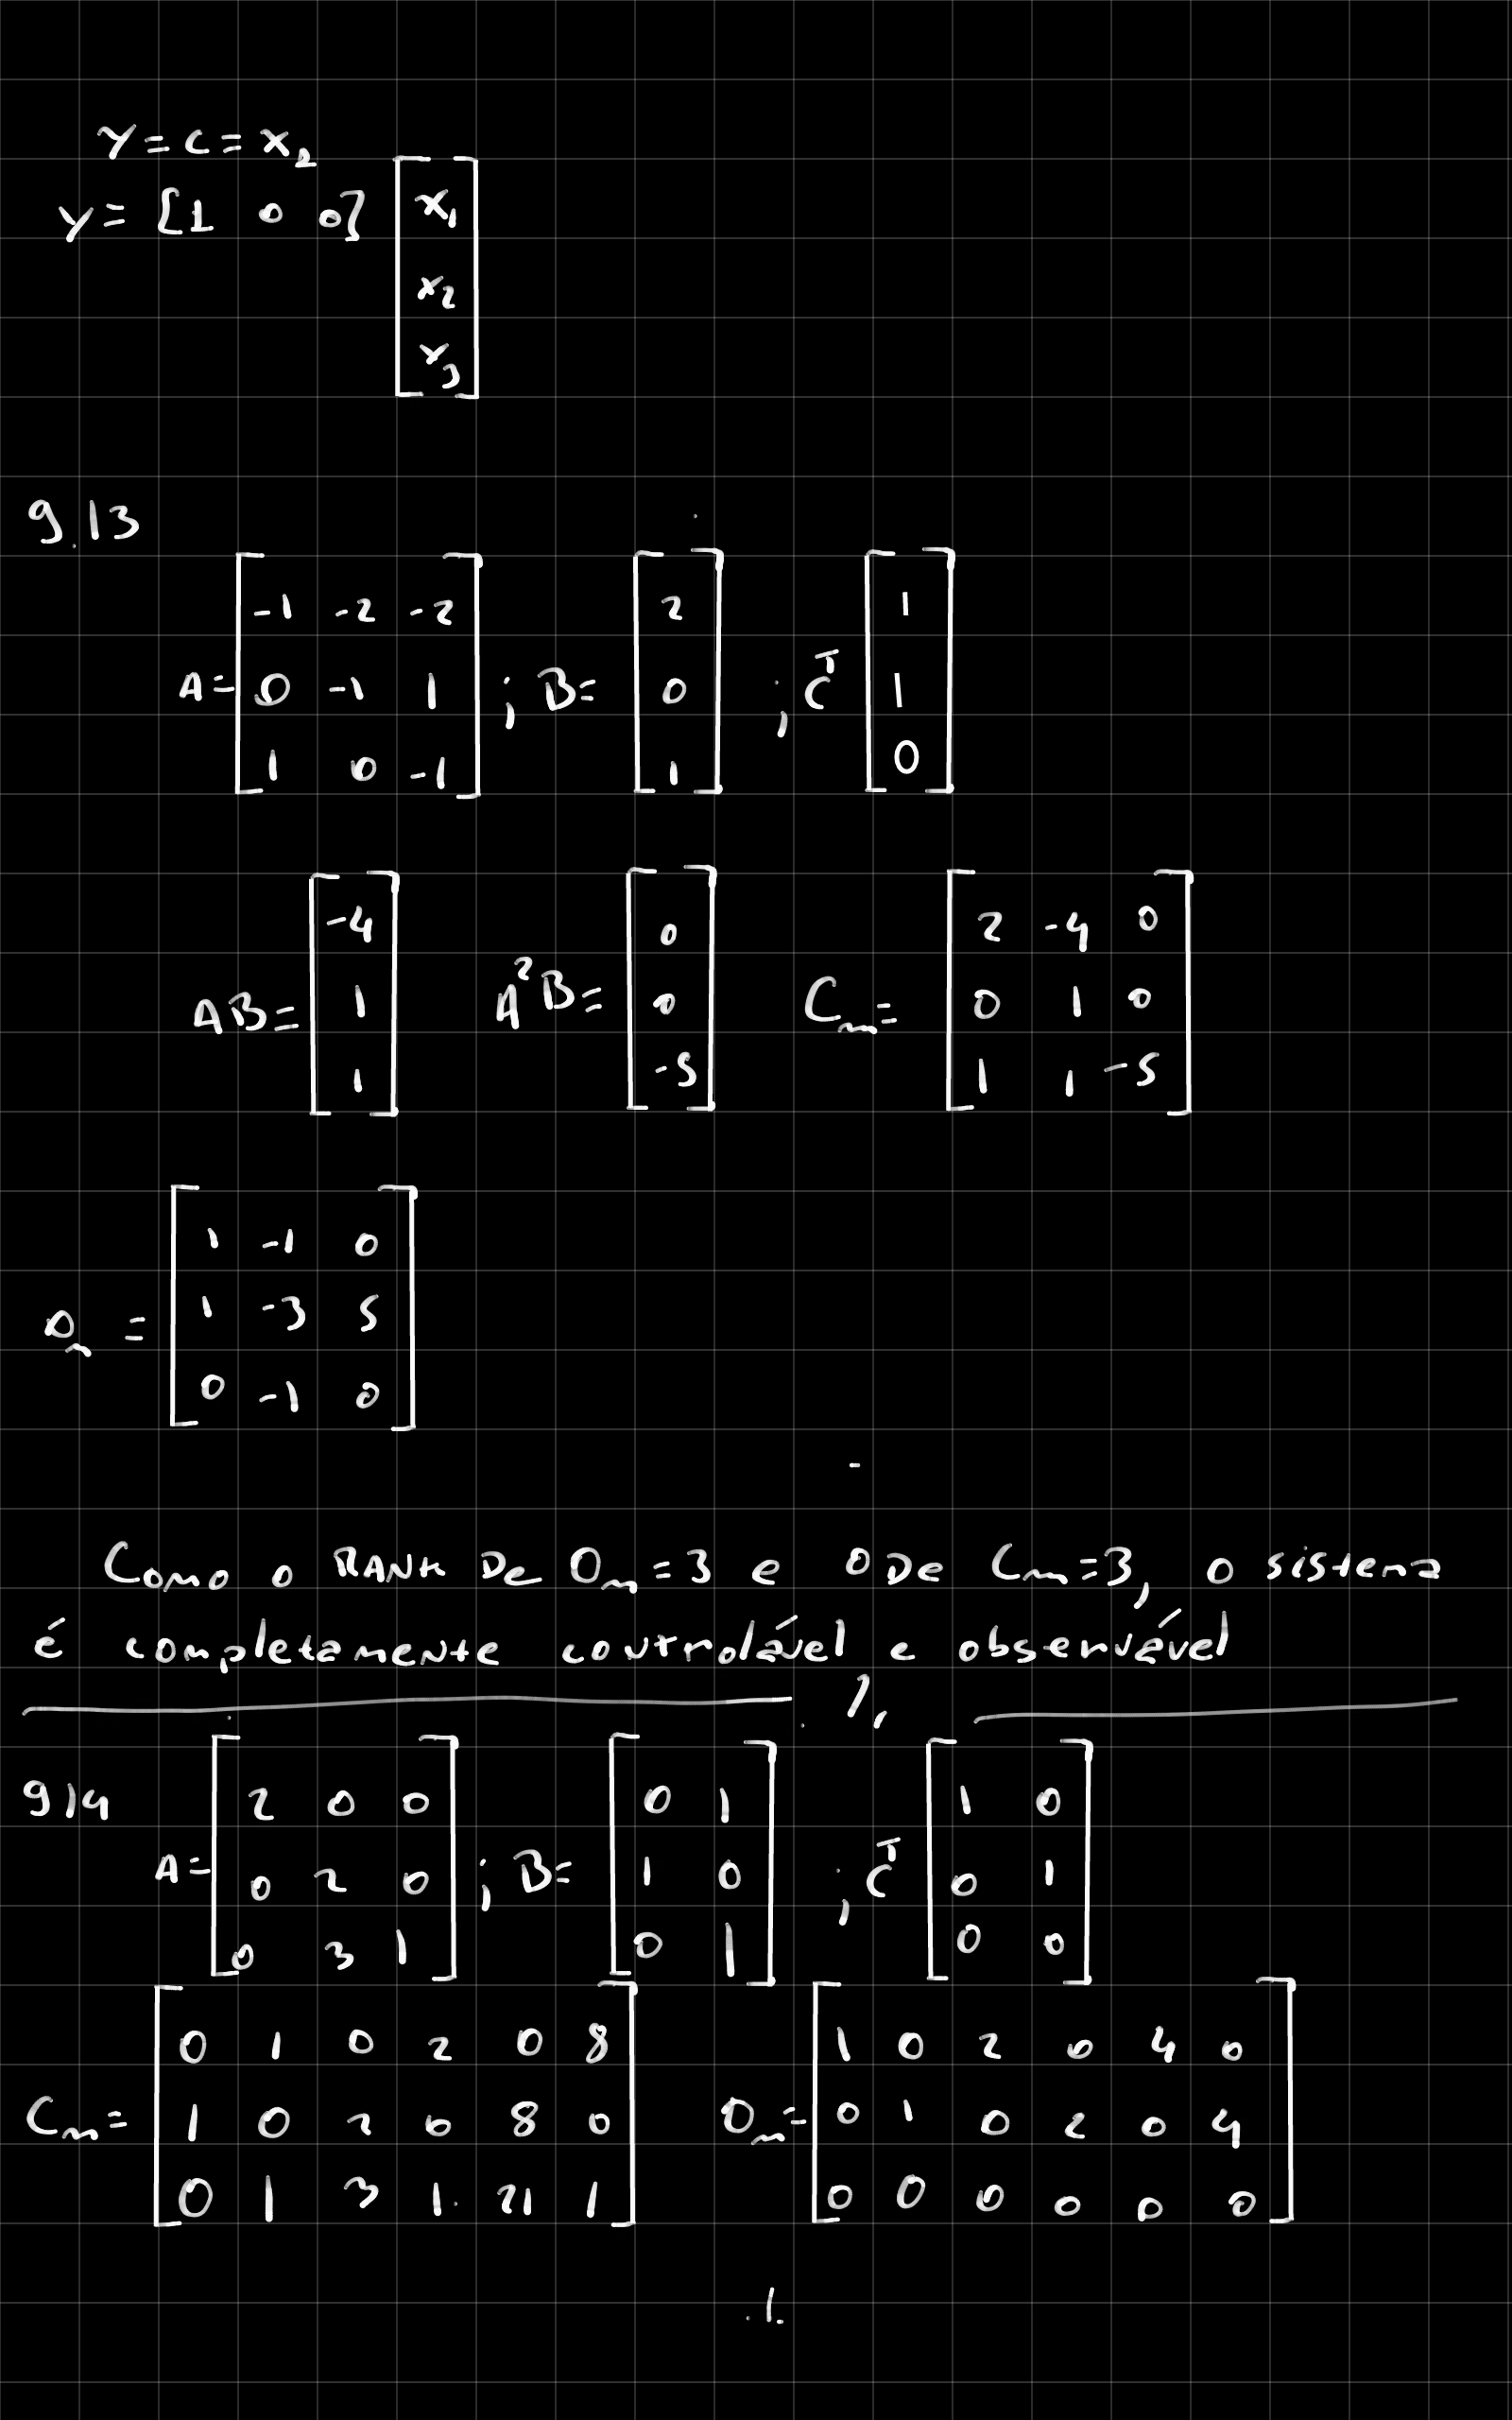 Y = C = X₂
y = [1 0 0] [x₁
x₂
x₃]
9.13
A = [-1 -2 -2
0 -1 1
1 0 -1] ; B = [2
0
1] ; Cᵀ [1
1
0]
AB = [-4
1
1] A²B = [0
0
-5] Cm = [2 -4 0
0 1 0
1 1 -5]
Om = [1 -1 0
1 -3 5
0 -1 0]
Como o RANK De Om = 3 e o De Cm = 3, o sistema
é completamente controlável e observável
914
A = [2 0 0
0 2 0
0 3 1] ; B = [0 1
1 0
0 1] ; Cᵀ [1 0
0 1
0 0]
Cm = [0 1 0 2 0 8
1 0 2 0 8 0
0 1 3 1 21 1] Om = [1 0 2 0 4 0
0 1 0 2 0 4
0 0 0 0 0 0]